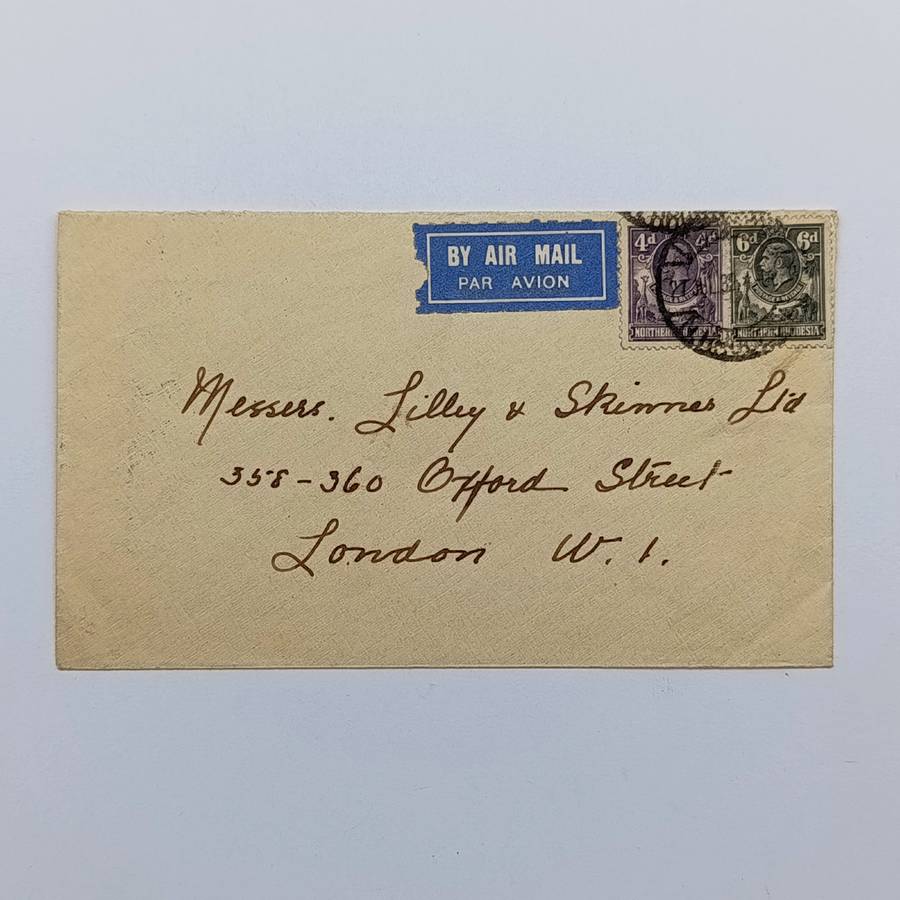 BY AIR MAIL
PAR AVION
4d 4d
NORTHERN RHODESIA
6d 6d
NORTHERN RHODESIA
Messers. Lilley & Skinner Ltd
358-360 Oxford Street
London W. 1.